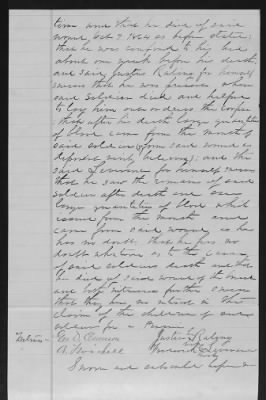 time and that he died of said
wound Oct 7 1864 as before stated;
that he was confined to his bed
about one week before his death;
and said Justus Ralzing for himself
swears that he was present when
said soldier died and helped
to lay him out & dress the corpse
that after his death large quantities
of blood came from the mouth of
said soldier (from said wound as
deponent verily believes); and the
said for himself swears
that he saw the remains of said
soldier after death and saw
large quantities of blood which
issued from the mouth and
came from said wound, as he
has no doubt; that he has no
doubt whatever as to the cause
of said soldiers death and that
he died of said wound of the
and both witnesses further swears
that they have no interest in the
claim of the children of said
soldier for a Pension
Witness Geo. D. Justus Ralzing
A. Frederick
Sworn and subscribed before